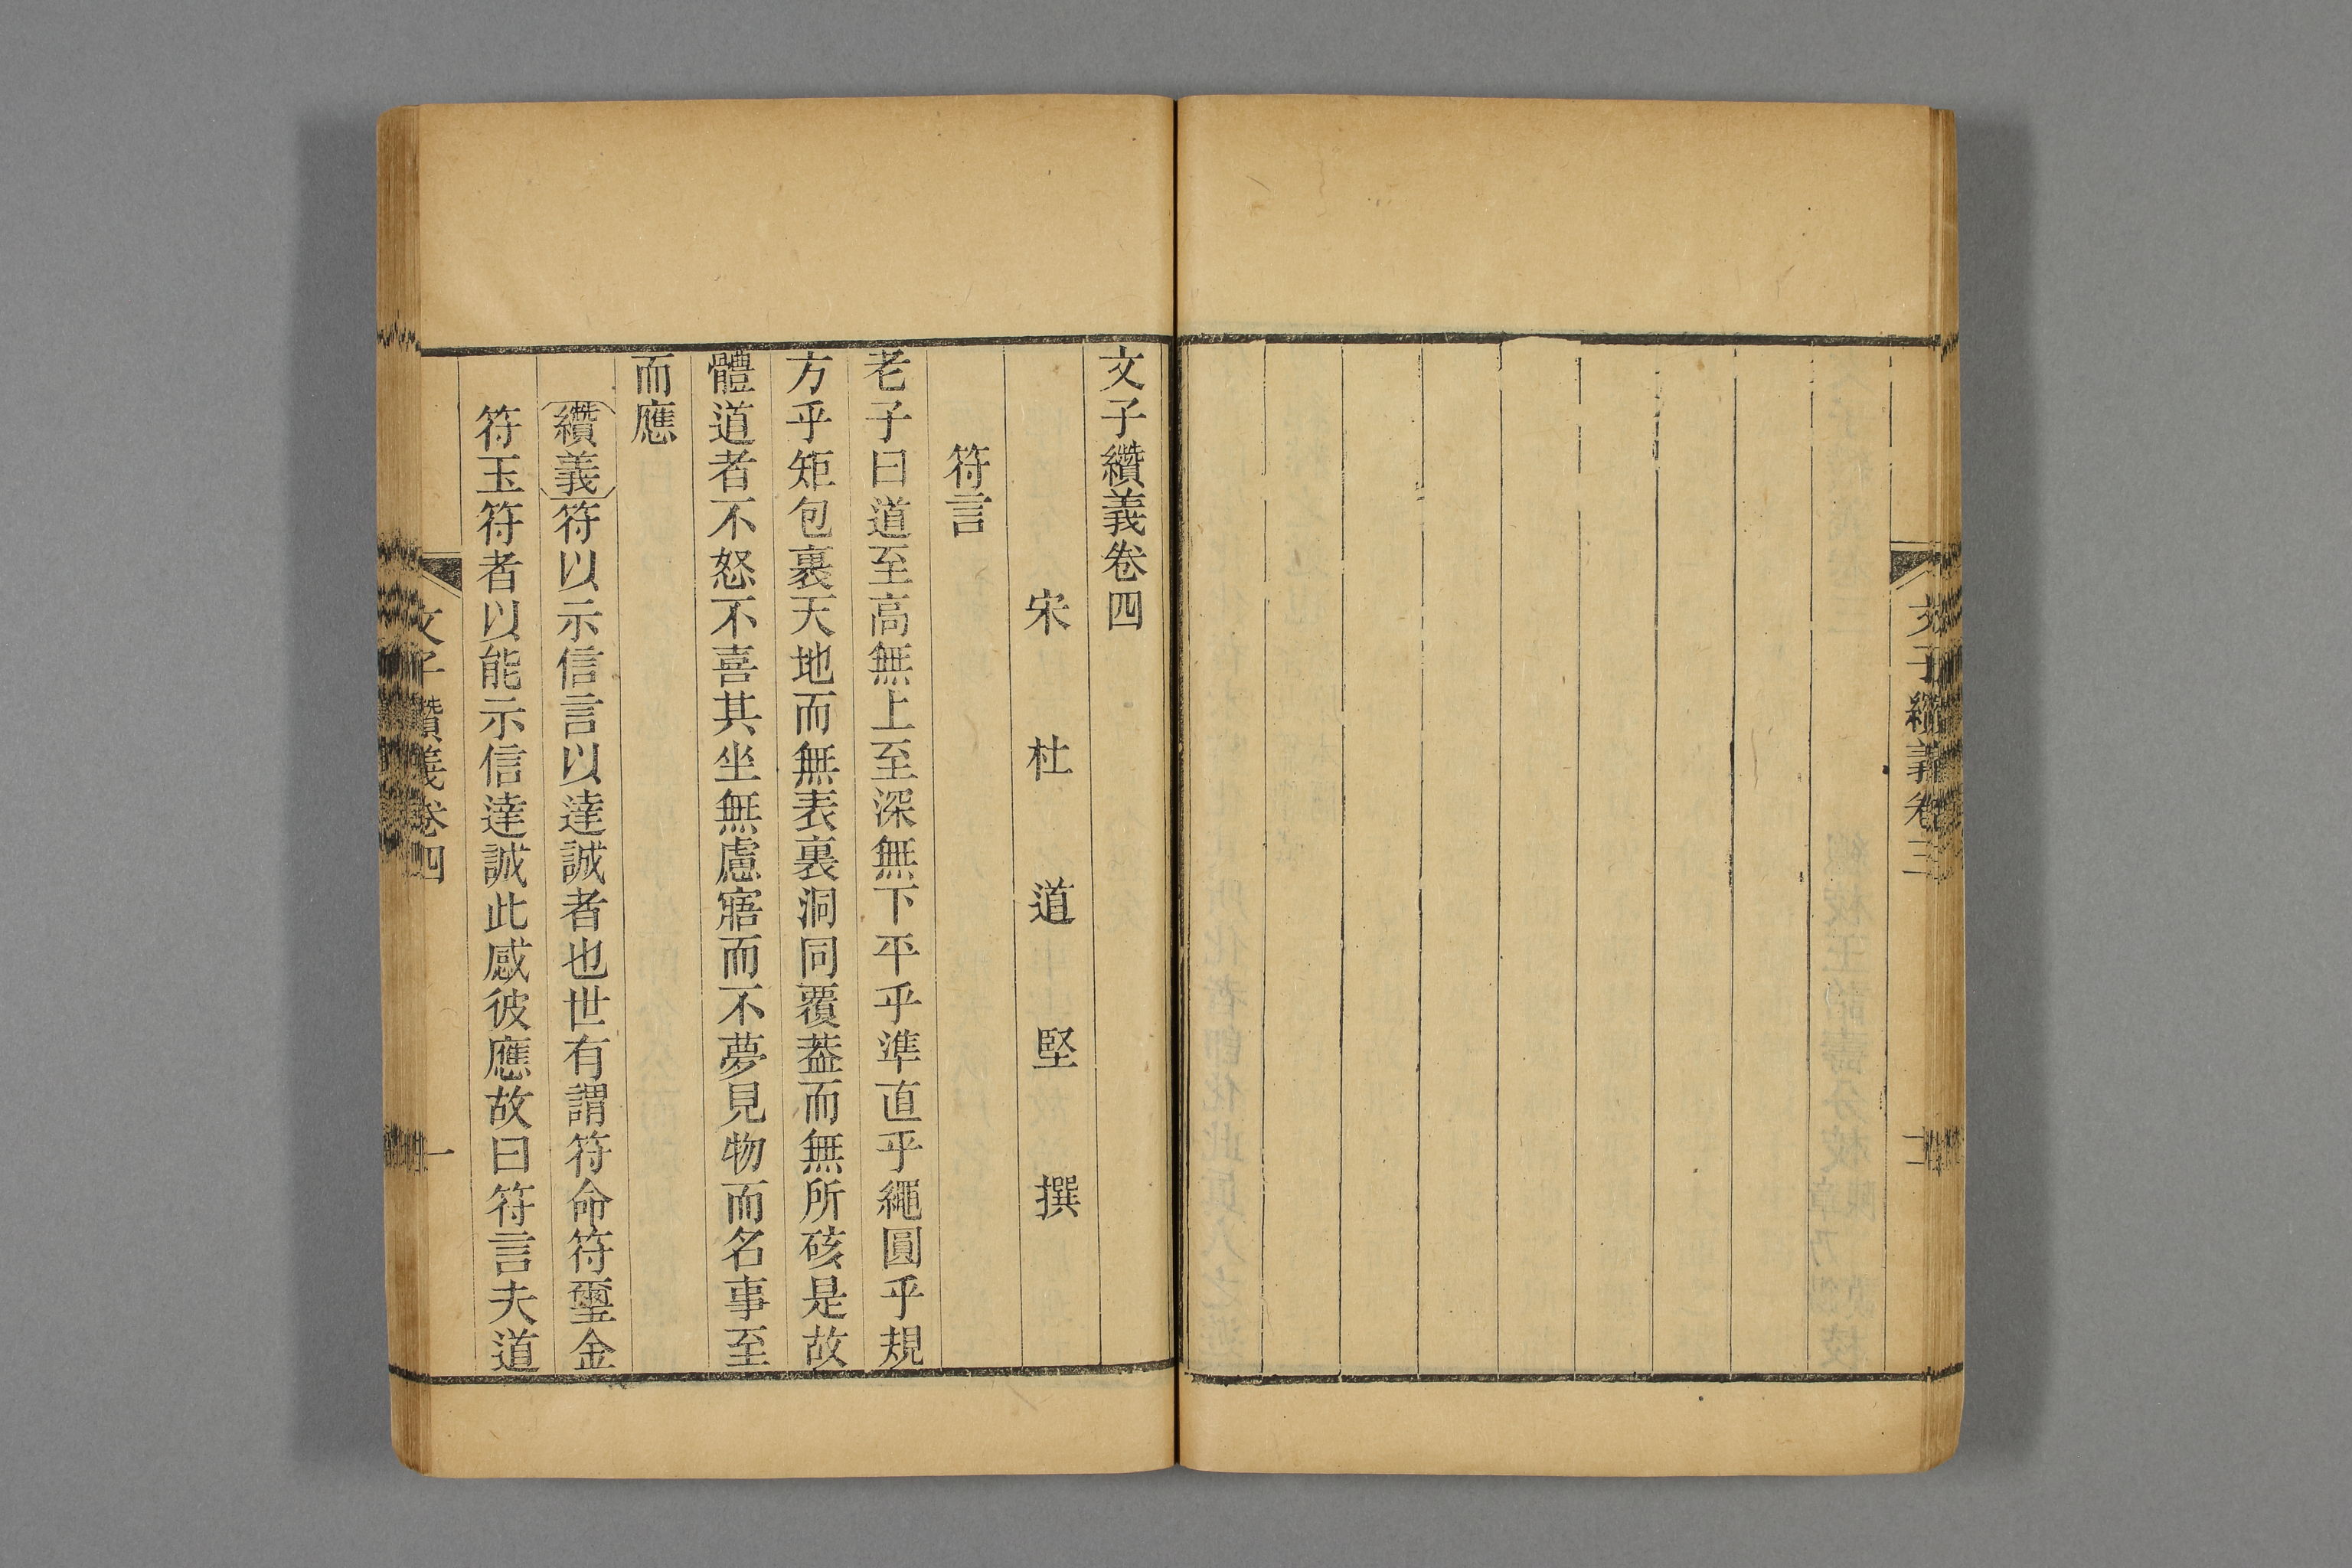 文子纘義卷三
文子纘義卷四
宋杜道堅撰
符言
老子曰道至高無上至深無下平乎準直乎繩圓乎規
方乎矩包裏天地而無表裏洞同覆葢而無所硋是故
體道者不怒不喜其坐無慮寤而不夢見物而名事至
而應
纘義符以示信言以達誠者也世有謂符命符璽金
符玉符者以能示信達誠此感彼應故曰符言夫道
文子纘義卷四
一